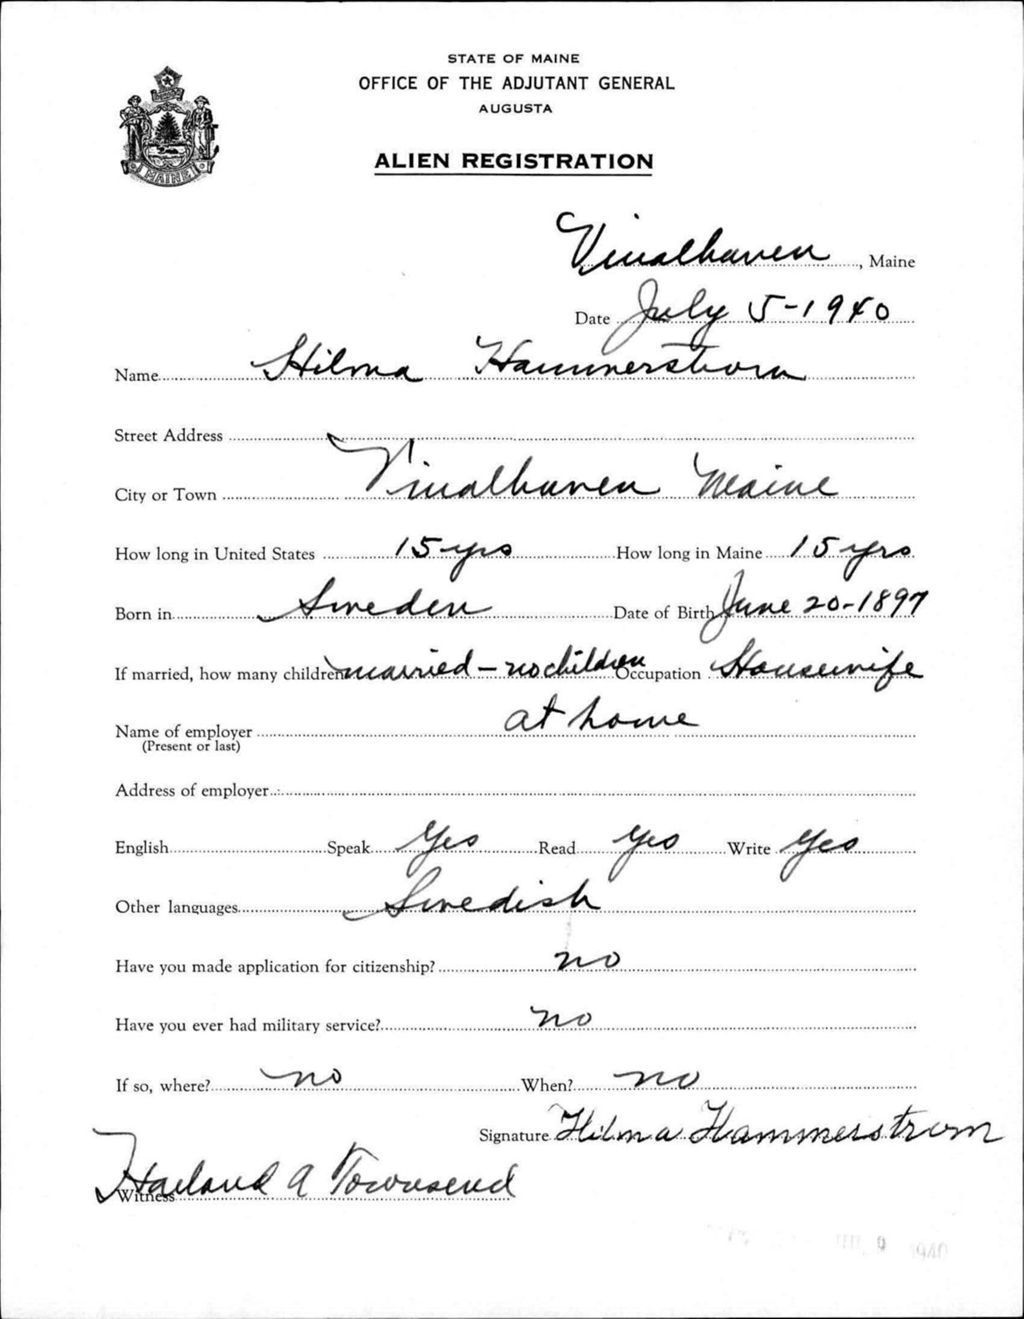 STATE OF MAINE
OFFICE OF THE ADJUTANT GENERAL
AUGUSTA
ALIEN REGISTRATION
MAINE
Vinalhaven, Maine
Date July 5-1940
Name Hilma Hammerstrom
Street Address
City or Town Vinalhaven Maine
How long in United States 15 yrs How long in Maine 15 yrs
Born in Sweden Date of Birth June 20-1897
If married, how many children married - no children Occupation Housewife
Name of employer at home
(Present or last)
Address of employer
English Speak Yes Read Yes Write Yes
Other languages Swedish
Have you made application for citizenship? no
Have you ever had military service? no
If so, where? no When? no
Signature Hilma Hammerstrom
Harland A Townsend
Witness
9 1940